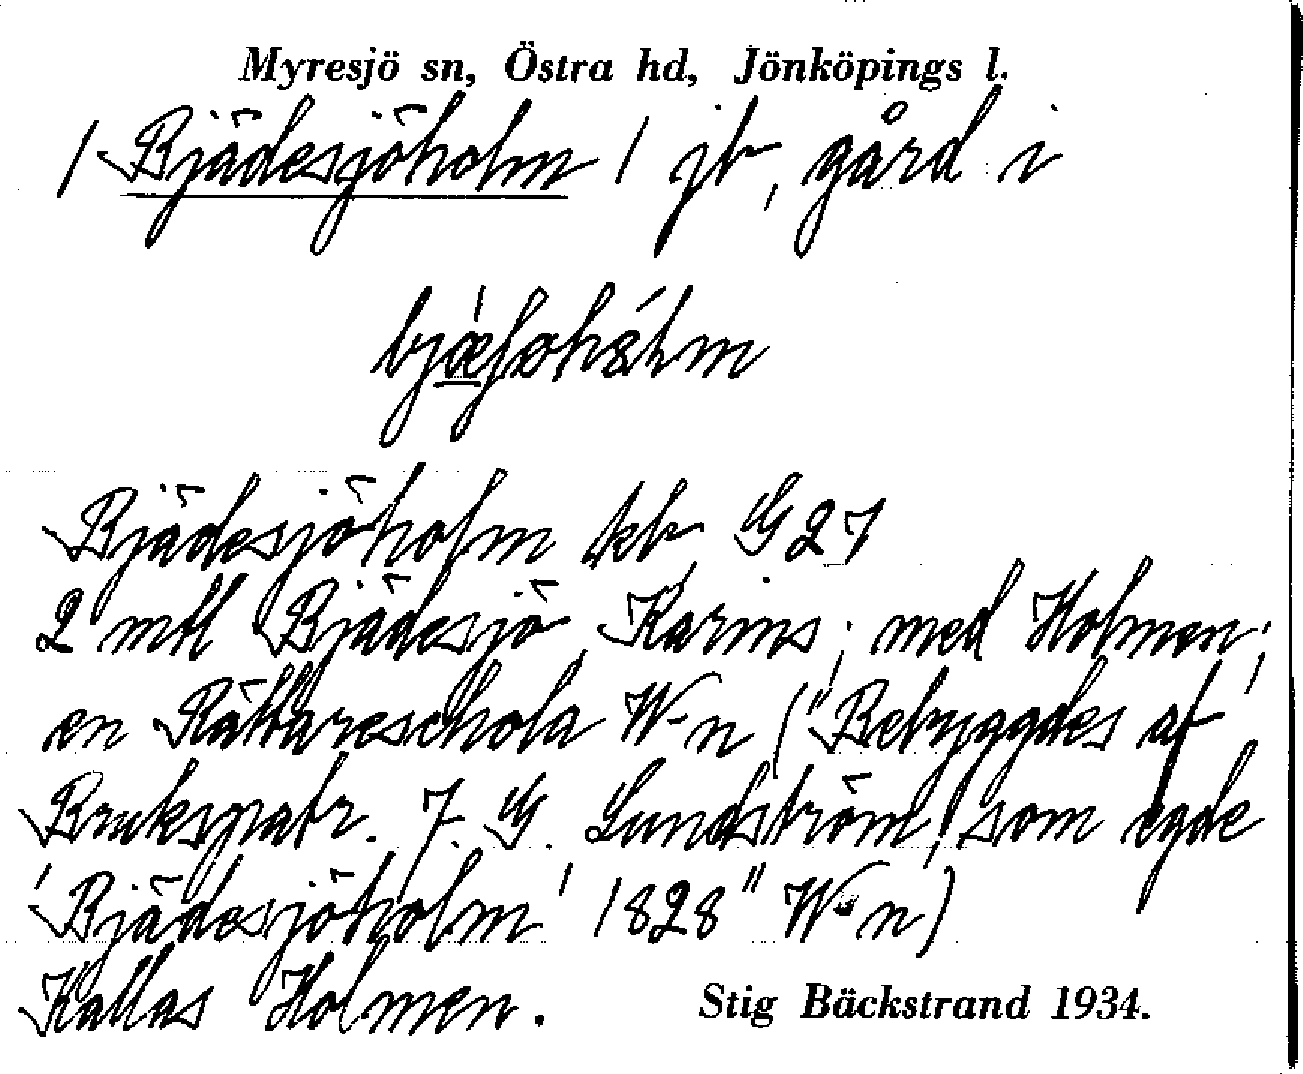 Myresjö sn, Östra hd, Jönköpings l.
/ Bjädesjöholm / jb, gård i
Bjädesjöholm kb G27
2 mtl Bjädesjö, Karins; med Holmen;
en Rättareschola W-n ("Bebyggdes af
Brukspatr. J. G. Lundström, som egde
'Bjädesjöholm' 1828" W-n)
Kallas Holmen.
Stig Bäckstrand 1934.